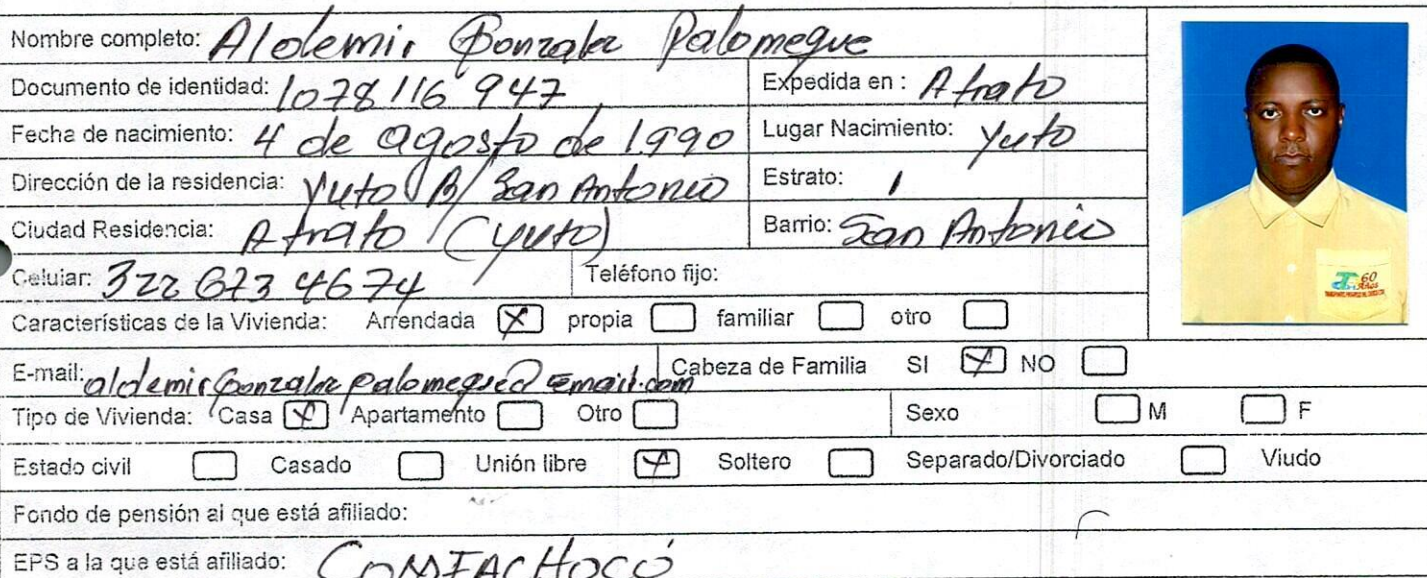 Nombre completo: Aldemir Gonzalez Palomeque
Documento de identidad: 1078116947 Expedida en : Atrato
Fecha de nacimiento: 4 de agosto de 1990 Lugar Nacimiento: Yuto
Dirección de la residencia: Yuto B/ San Antonio Estrato: 1
Ciudad Residencia: Atrato (Yuto) Barrio: San Antonio
Celular: 322 673 4674 Teléfono fijo:
60 Años
Características de la Vivienda: Arrendada X propia familiar otro
E-mail: aldemirgonzalezpalomeque@Gmail.com Cabeza de Familia SI X NO
Tipo de Vivienda: Casa X Apartamento Otro Sexo M F
Estado civil Casado Unión libre X Soltero Separado/Divorciado Viudo
Fondo de pensión al que está afiliado:
EPS a la que está afiliado: COMFACHOCÓ